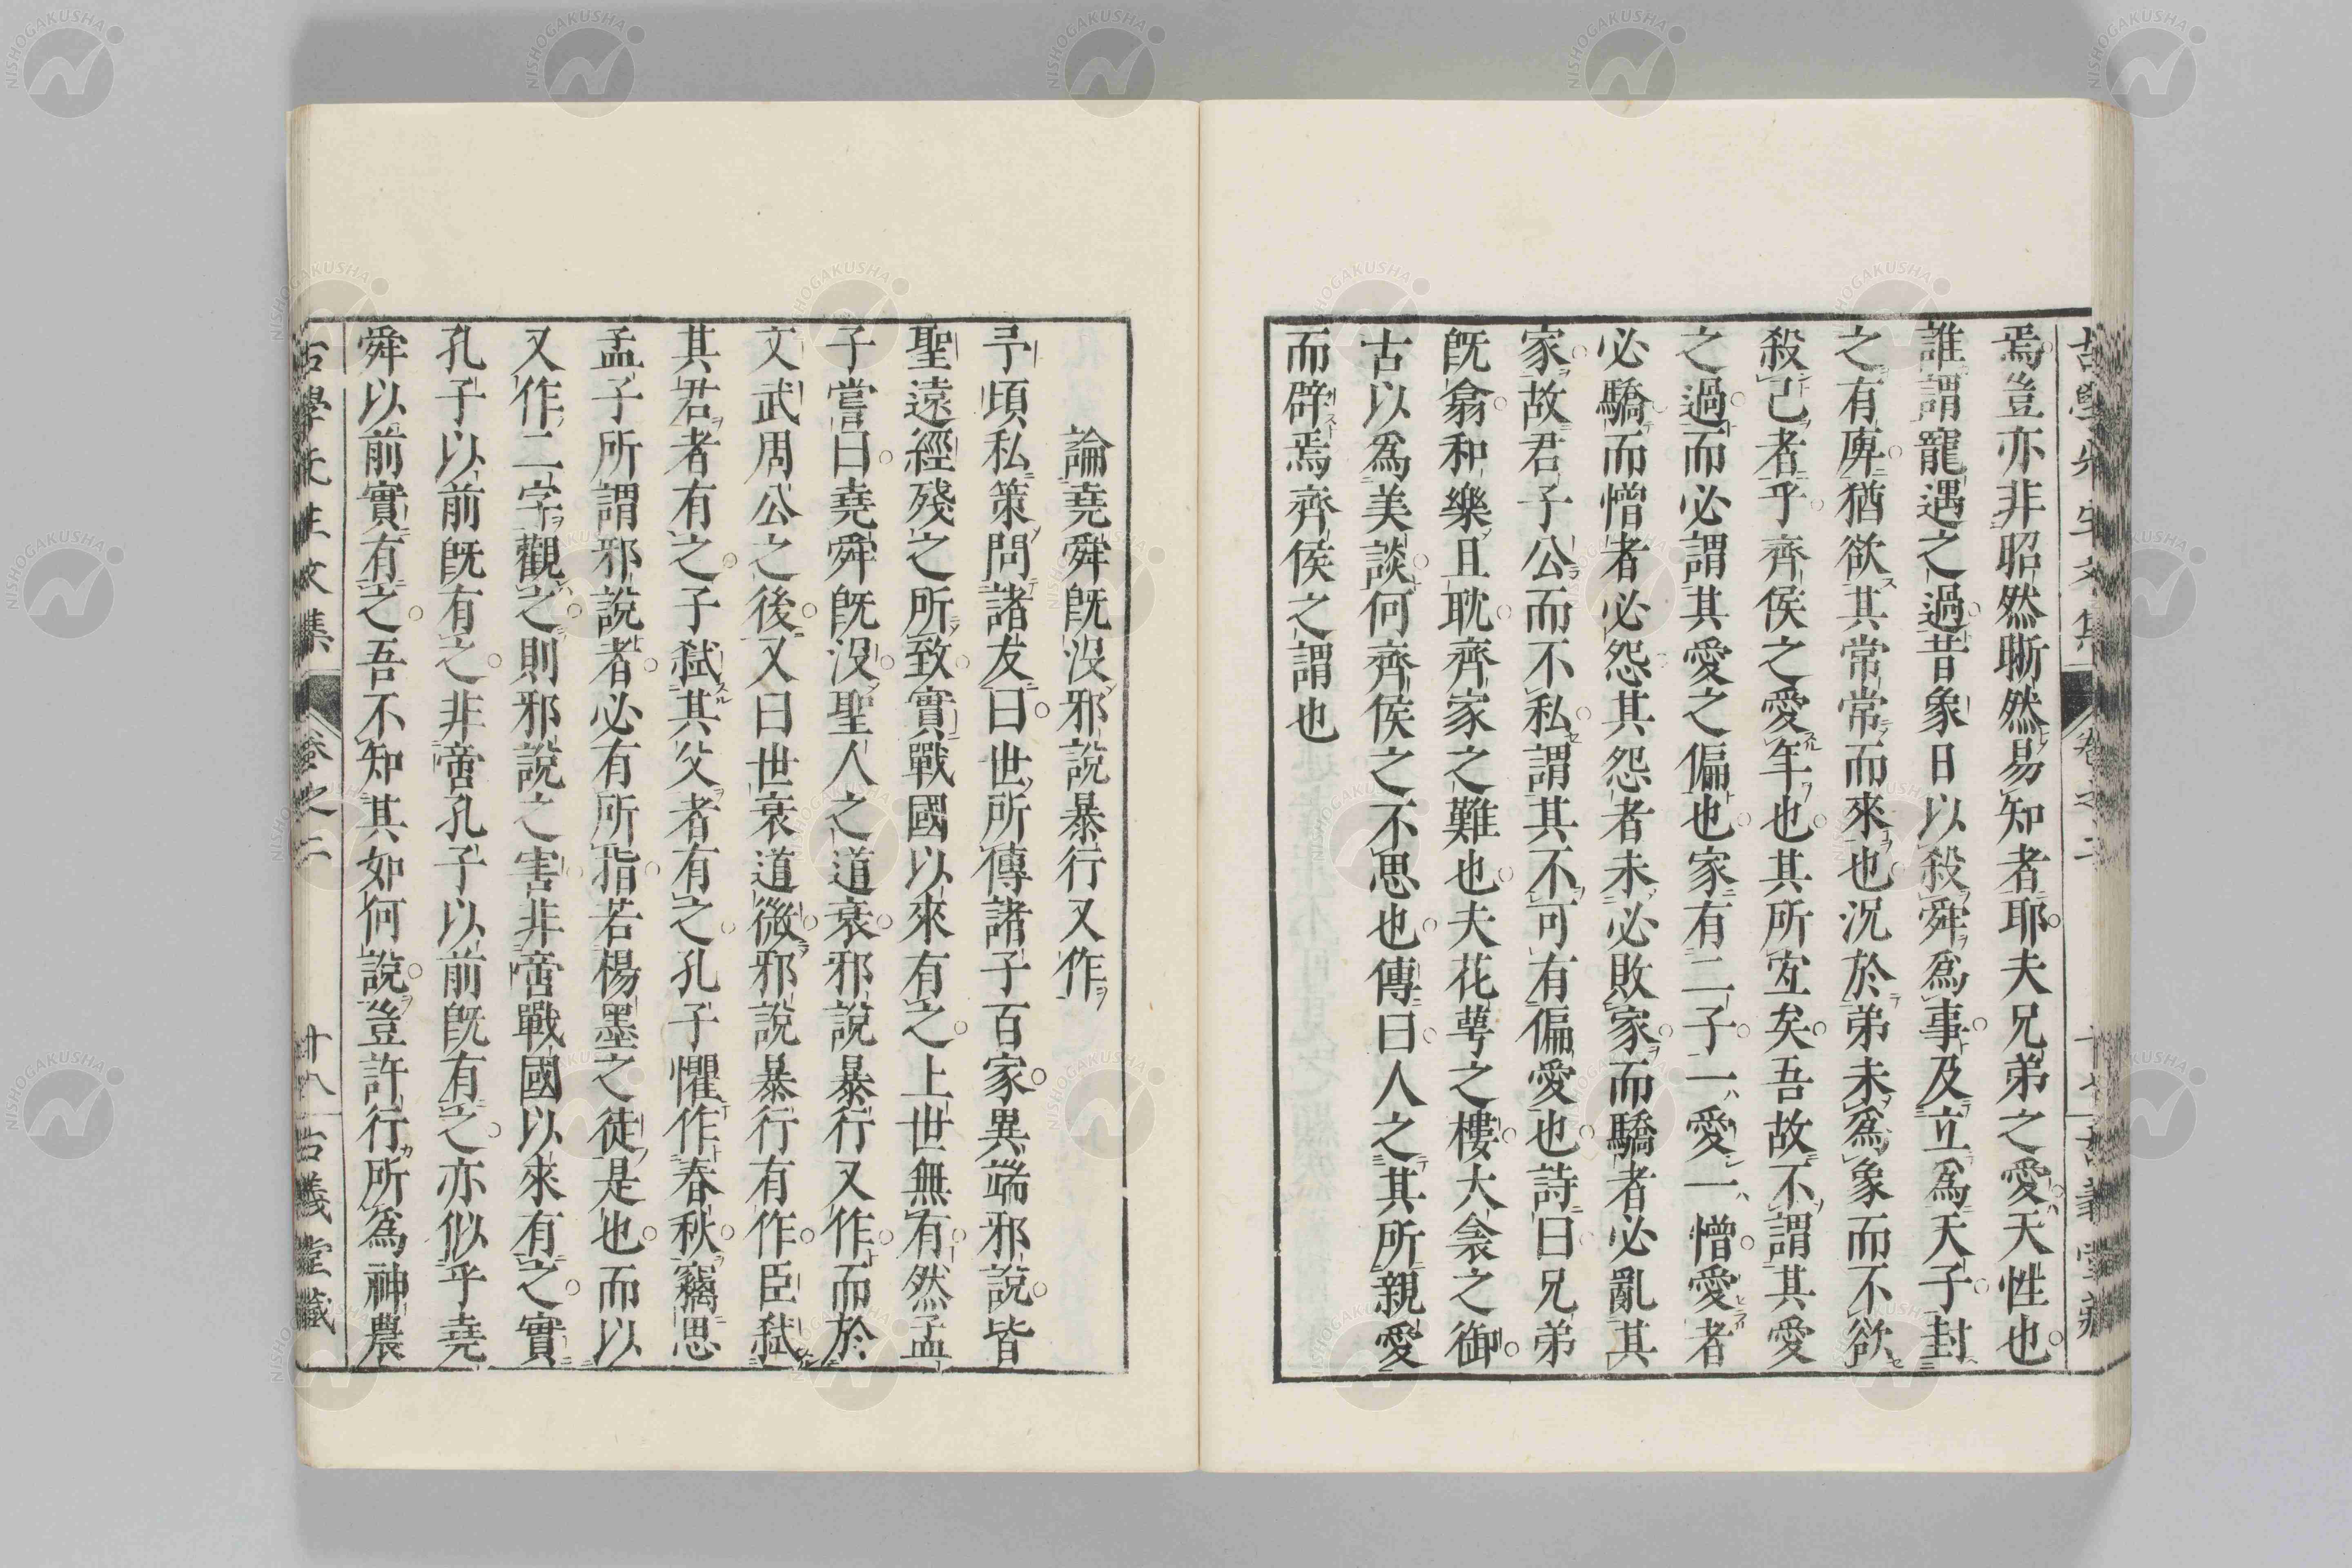 焉豈亦非昭然晰然易知者耶夫兄弟之愛天性也
誰謂寵遇之過昔象日以殺舜爲事及立爲天子封
之有庳猶欲其常常而來也況於弟未爲象而不欲
殺己者乎齊侯之愛年也其所宐矣吾故不謂其愛
之過而必謂其愛之偏也家有二子一愛一憎愛者
必驕而憎者必怨其怨者未必敗家而驕者必亂其
家故君子公而不私謂其不可有偏愛也詩曰兄弟
旣翕和樂且耽齊家之難也夫花萼之樓大衾之御
古以爲美談何齊侯之不思也傳曰人之其所親愛
而辟焉齊侯之謂也
論堯舜旣沒邪說暴行又作
予頃私策問諸友曰世所傳諸子百家異端邪說皆
聖遠經殘之所致實戰國以來有之上世無有然孟
子嘗曰堯舜旣沒聖人之道衰邪說暴行又作而於
文武周公之後又曰世衰道微邪說暴行有作臣弑
其君者有之子弑其父者有之孔子懼作春秋竊思
孟子所謂邪說者必有所指若楊墨之徒是也而以
又作二字觀之則邪說之害非啻戰國以來有之實
孔子以前旣有之非啻孔子以前旣有之亦似乎堯
舜以前實有之吾不知其如何說豈許行所爲神農
古學先生文集 卷之二 十八 古義堂藏
NISHOGAKUSHA